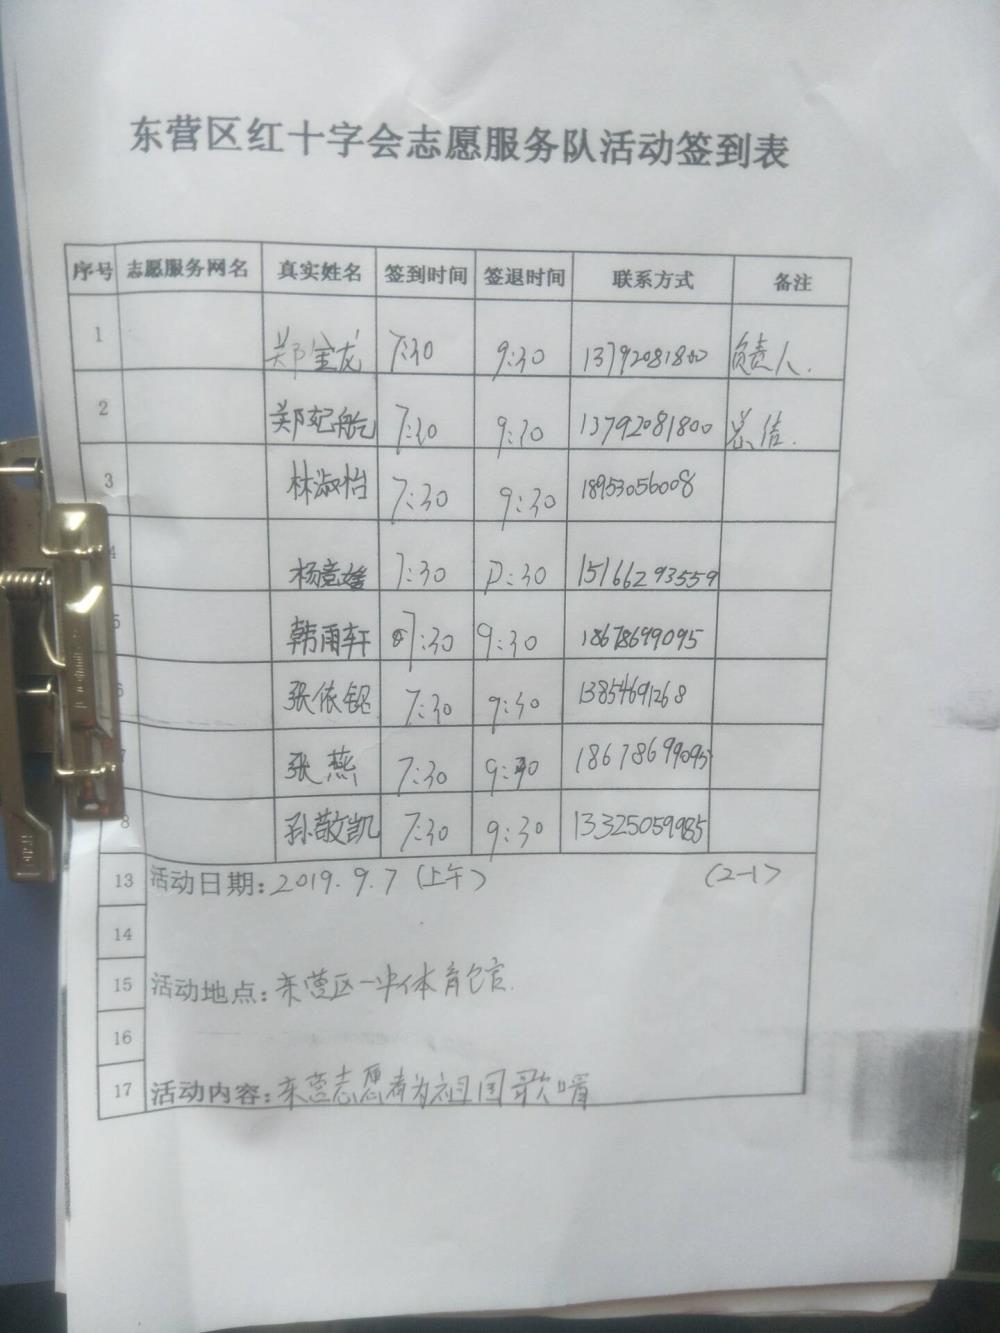 东营区红十字会志愿服务队活动签到表
序号 志愿服务网名 真实姓名 签到时间 签退时间 联系方式 备注
1 郑金龙 7:30 9:30 13792081800 负责人.
2 郑妃航 7:30 9:30 13792081800 总结.
3 林淑怡 7:30 9:30 18953056008
4 杨意 7:30 9:30 15166293559
5 韩雨轩 7:30 9:30 18678699095
6 张依铭 7:30 9:30 13854691268
7 张燕 7:30 9:30 18678699095
8 孙敬凯 7:30 9:30 13325059985
13 活动日期:2019.9.7(上午) (2-1)
14
15 活动地点:东营区一中体育馆.
16
17 活动内容:东营志愿者为祖国歌唱